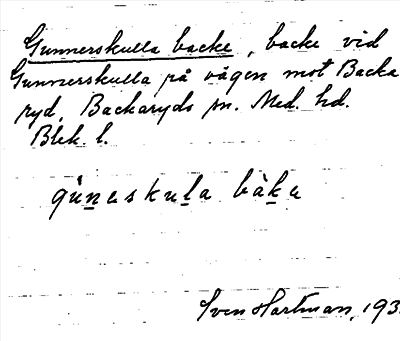 Gunnerskulla backe, backe vid
Gunnerskulla på vägen mot Backa
ryd, Backaryds sn. Med. hd.
Blek. l.
gùnɐskula bàkɐ
Sven Hartman, 193